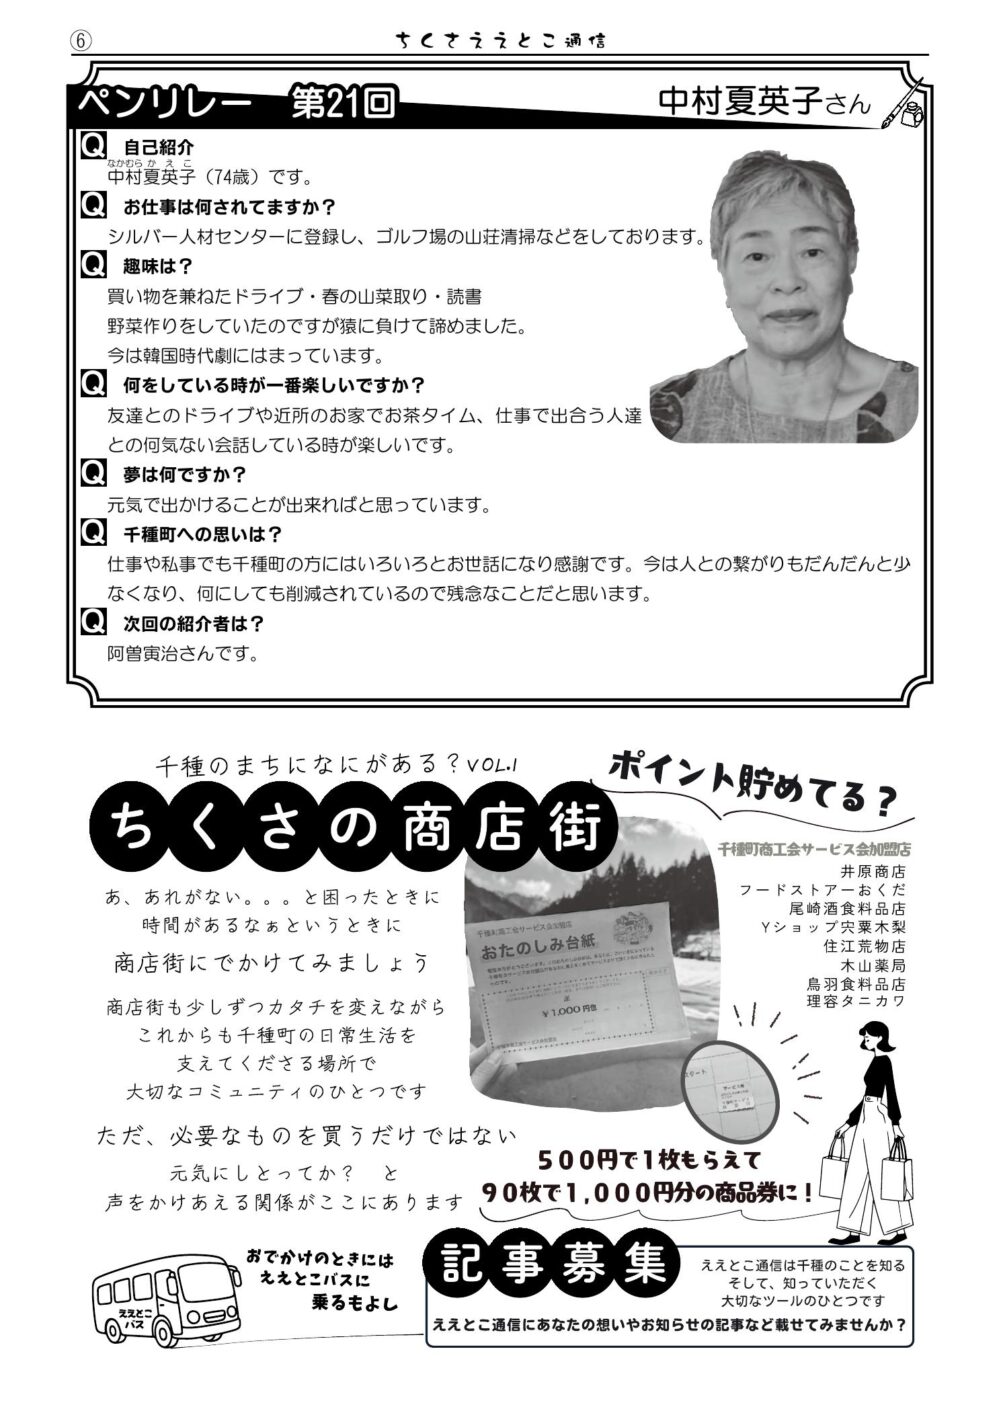 ⑥
ちくさええとこ通信
ペンリレー 第21回
中村夏英子さん
Q 自己紹介
なかむら か え こ
中村夏英子(74歳)です。
Q お仕事は何されてますか?
シルバー人材センターに登録し、ゴルフ場の山荘清掃などをしております。
Q 趣味は?
買い物を兼ねたドライブ・春の山菜取り・読書
野菜作りをしていたのですが猿に負けて諦めました。
今は韓国時代劇にはまっています。
Q 何をしている時が一番楽しいですか?
友達とのドライブや近所のお家でお茶タイム、仕事で出合う人達
との何気ない会話している時が楽しいです。
Q 夢は何ですか?
元気で出かけることが出来ればと思っています。
Q 千種町への思いは?
仕事や私事でも千種町の方にはいろいろとお世話になり感謝です。今は人との繋がりもだんだんと少
なくなり、何にしても削減されているので残念なことだと思います。
Q 次回の紹介者は?
阿曽寅治さんです。
千種のまちになにがある?VOL.1
ちくさの商店街
あ、あれがない。。。と困ったときに
時間があるなぁというときに
商店街にでかけてみましょう
商店街も少しずつカタチを変えながら
これからも千種町の日常生活を
支えてくださる場所で
大切なコミュニティのひとつです
ただ、必要なものを買うだけではない
元気にしとってか? と
声をかけあえる関係がここにあります
ポイント貯めてる?
千種町商工会サービス会加盟店
井原商店
フードストアーおくだ
尾崎酒食料品店
Yショップ宍粟木梨
住江荒物店
木山薬局
鳥羽食料品店
理容タニカワ
千種町商工会サービス会加盟店
おたのしみ台紙
¥1,000円也
500円で1枚もらえて
90枚で1,000円分の商品券に!
おでかけのときには
ええとこバスに
乗るもよし
ええとこ
バス
記事募集
ええとこ通信は千種のことを知る
そして、知っていただく
大切なツールのひとつです
ええとこ通信にあなたの想いやお知らせの記事など載せてみませんか?